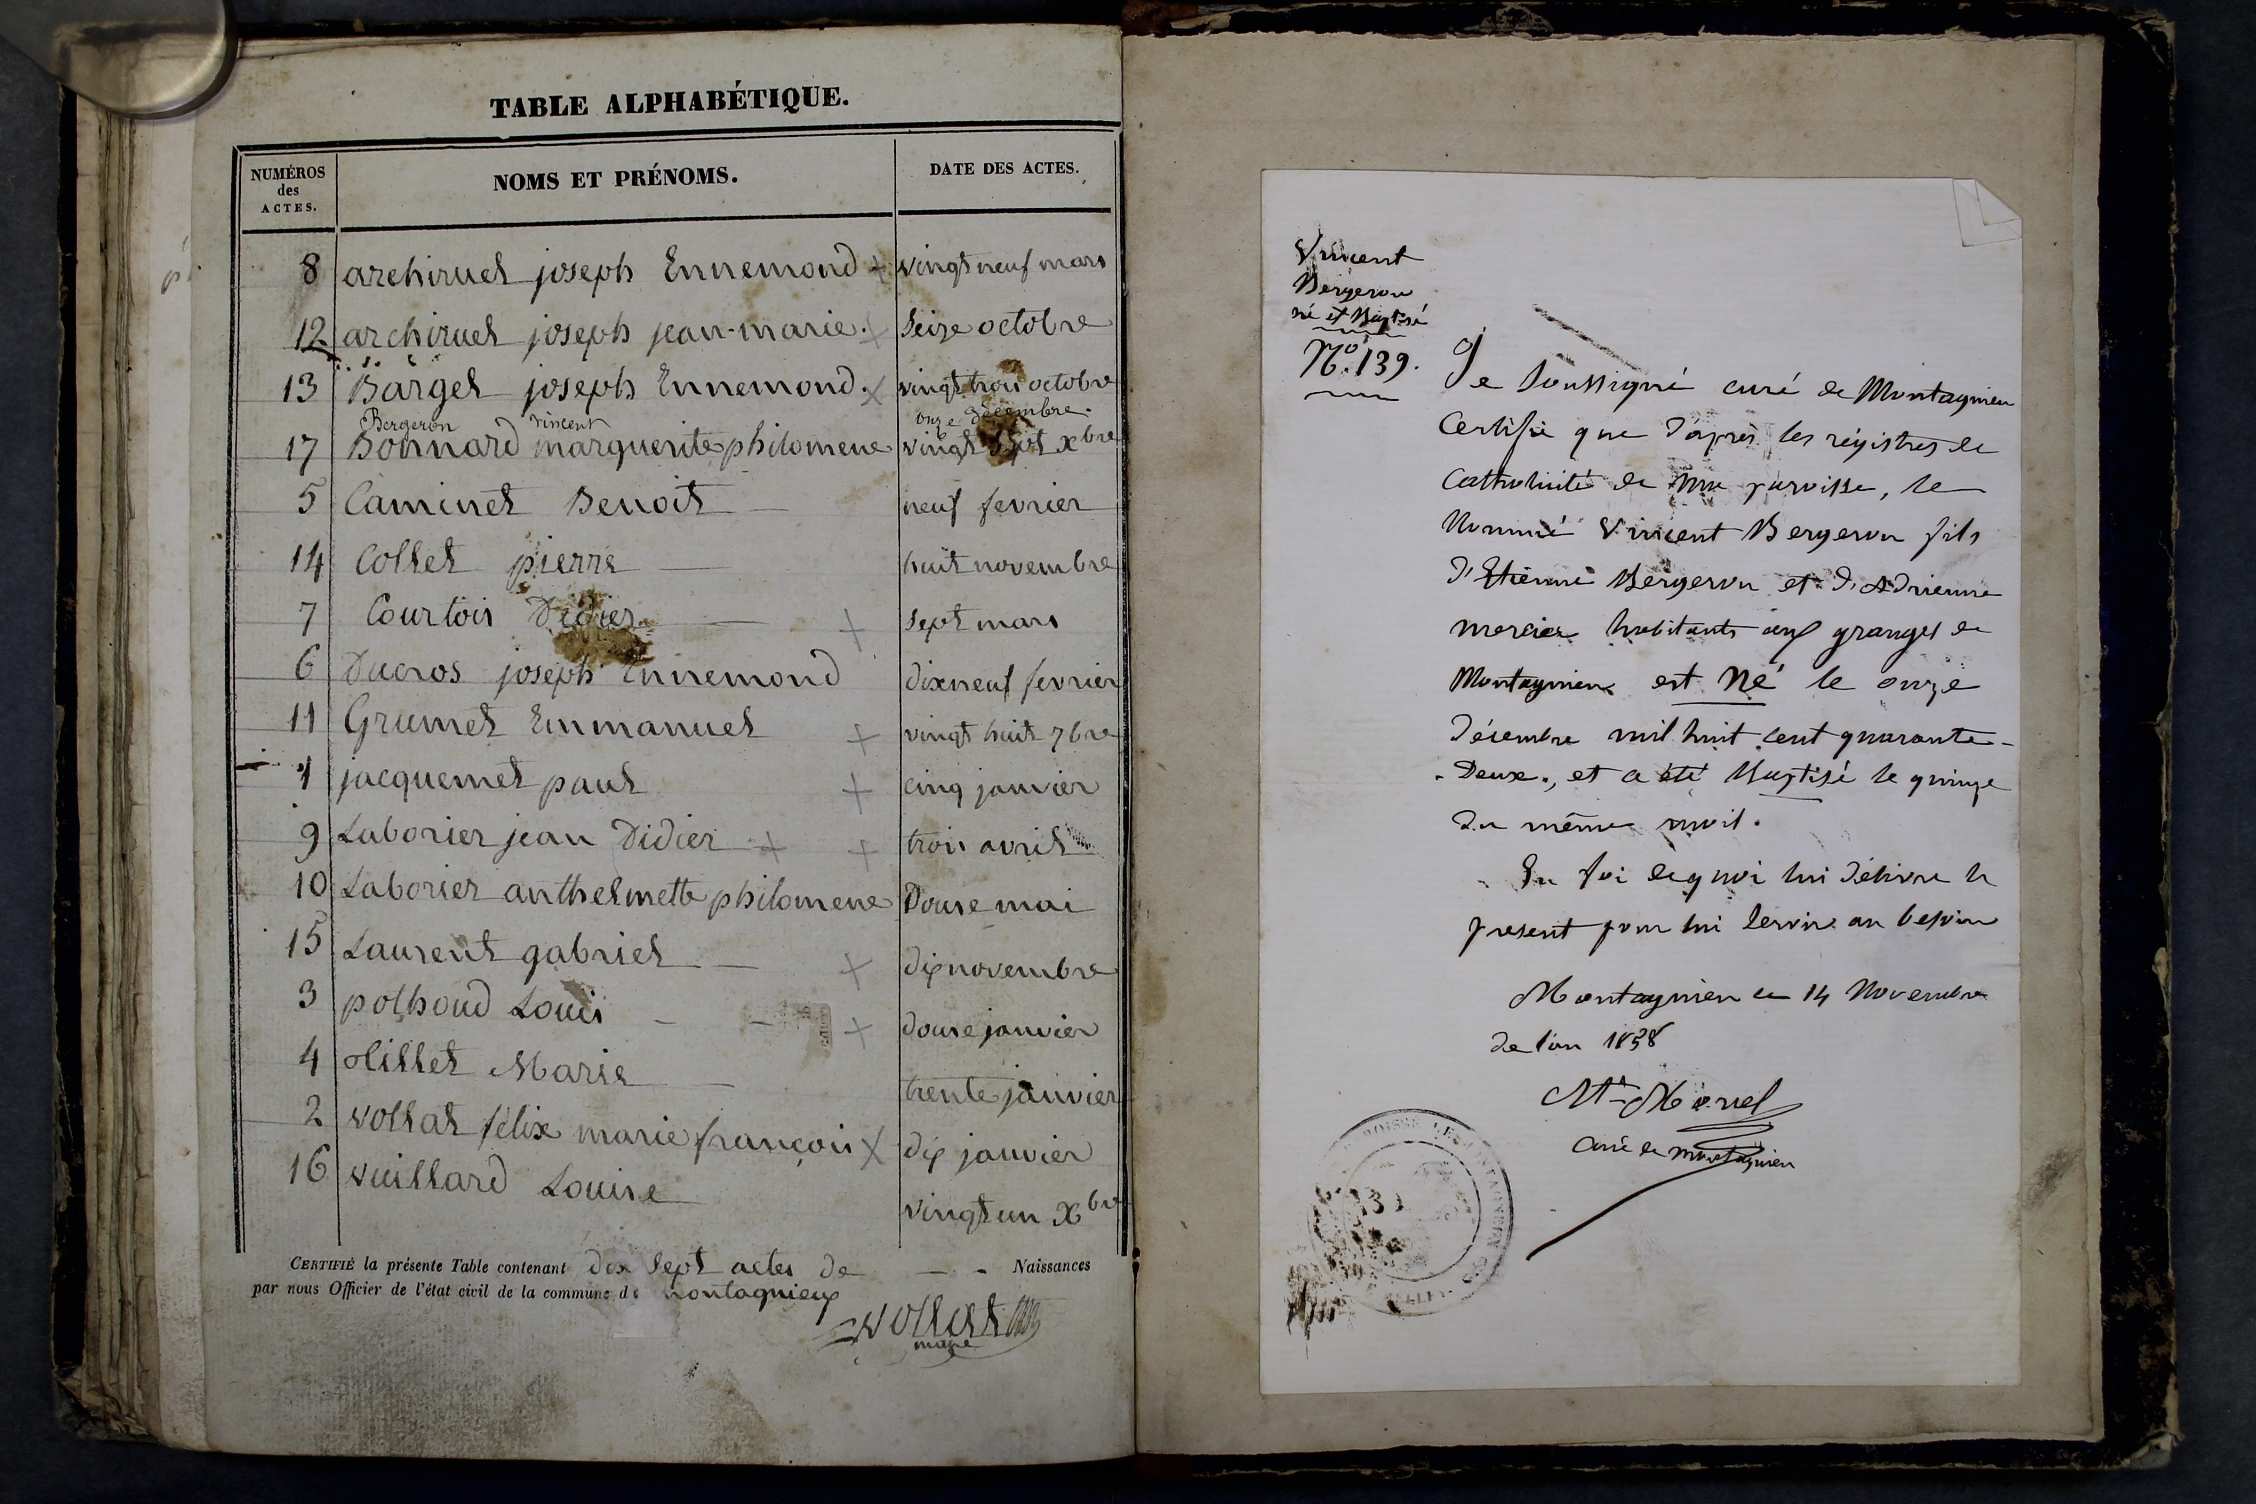 TABLE ALPHABÉTIQUE.
NUMÉROS des ACTES. NOMS ET PRÉNOMS. DATE DES ACTES.
8 archiruel joseph Ennemond + vingt neuf mars
12 archiruel joseph jean-marie. + Seize octobre
13 Bargel joseph Ennemond. + vingt trois octobre
Bergeron Vincent onze décembre.
17 Bonnard marguerite philomene vingt sept Xbre
5 Caminet Benoit neuf fevrier
14 Collet pierre huit novembre
7 Courtois Didier + Sept mars
6 Ducros joseph Ennemond dix neuf fevrier
11 Grumet Emmanuel + vingt huit 7bre
1 jacquemet paul + cinq janvier
9 Laborier jean Didier + + trois avril
10 Laborier anthelmette philomene Douse mai
15 Laurent gabriel + dix novembre
3 polhoud Louis + douse janvier
4 Marie trente janvier
2 vollat félix marie françois + dix janvier
16 vuillard Louise vingt un Xbre
CERTIFIÉ la présente Table contenant dix Sept actes de Naissances
par nous Officier de l'état civil de la commune de montagnieux
vollat
maire
Vincent
Bergeron
né et Baptisé
No. 139.
Je Soussigné curé de Montagnieu
Certifie que d'après les régistres de
Catholicité de ma paroisse, le
Nommé Vincent Bergeron fils
d'Etienne Bergeron et d'Adrienne
mercier habitants aux granges de
Montagnieu est Né le onze
décembre mil huit cent quarante-
-Deux., et a été Baptisé le quinze
du même mois.
En foi de quoi lui délivre le
present pour lui servir au besoin
Montagnieu ce 14 Novembre
de l'an 1858
Curé de montagnieu